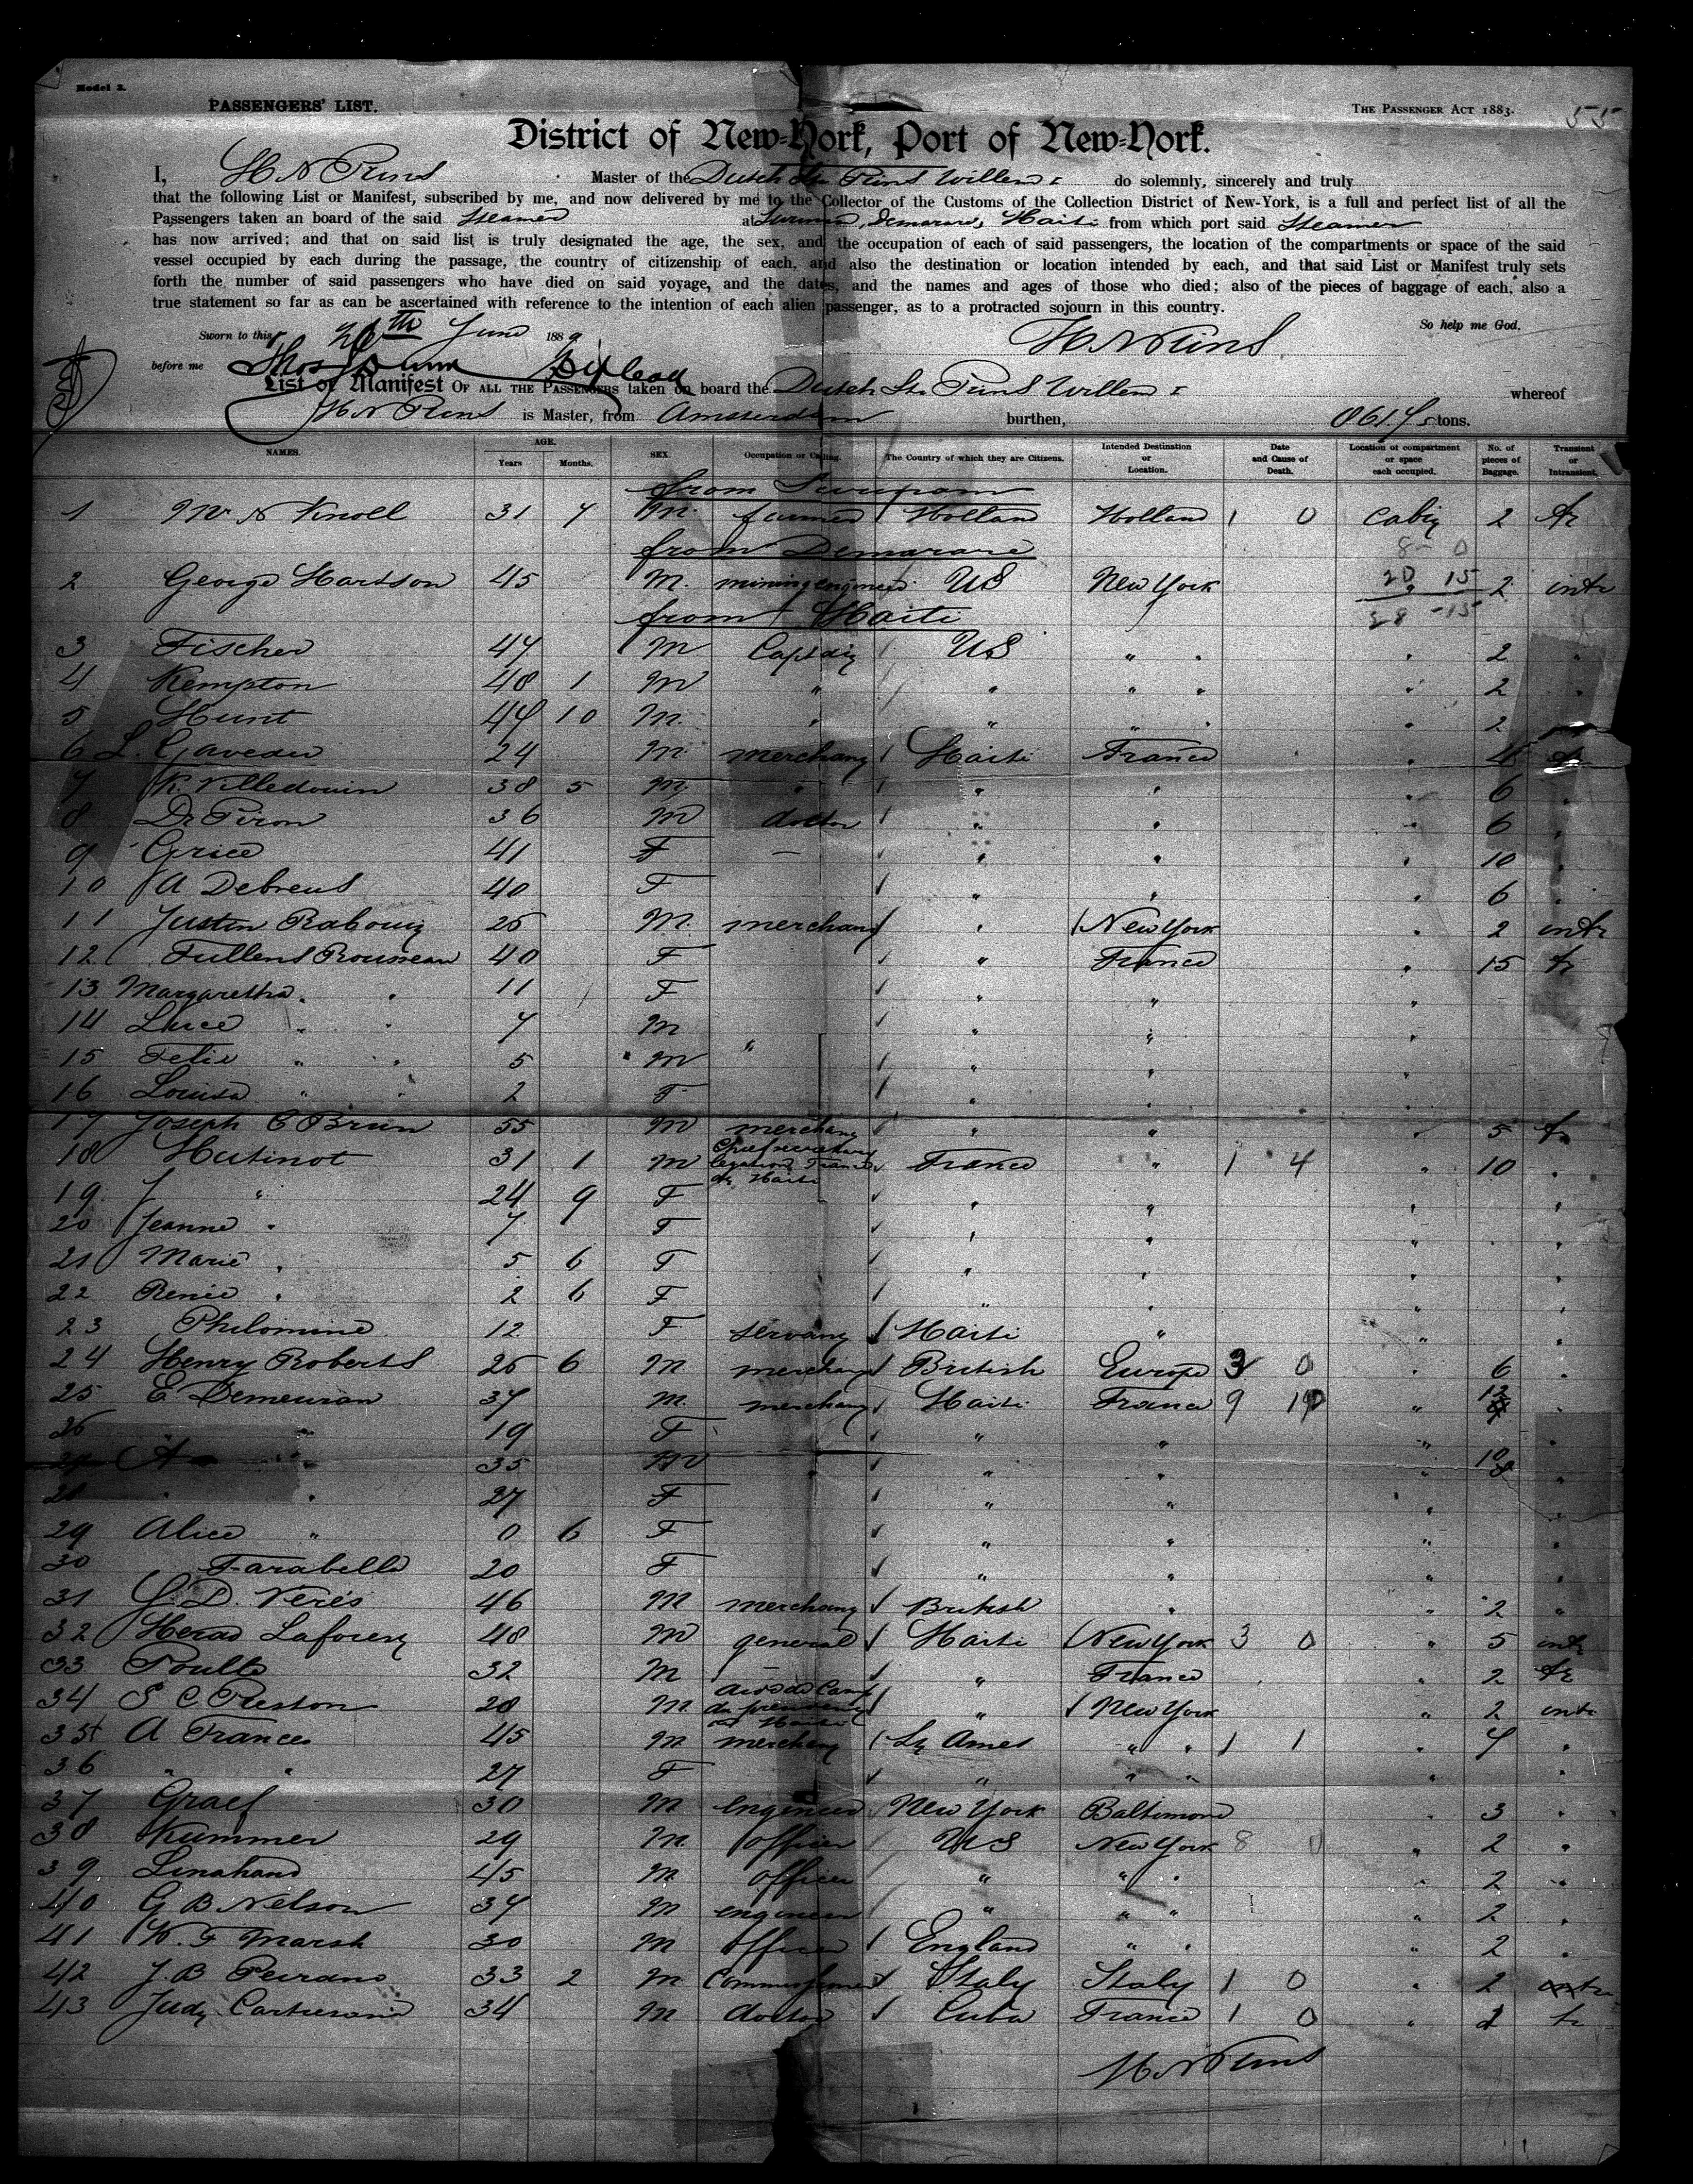 Model 2.
PASSENGERS' LIST.
THE PASSENGER ACT 1883.
55
District of New-York, Port of New-York.
I, H N Prins Master of the Dutch Str. Prins Willem I do solemnly, sincerely and truly
that the following List or Manifest, subscribed by me, and now delivered by me to the Collector of the Customs of the Collection District of New-York, is a full and perfect list of all the
Passengers taken an board of the said Steamer at Demarare, Haiti from which port said Steamer
has now arrived; and that on said list is truly designated the age, the sex, and the occupation of each of said passengers, the location of the compartments or space of the said
vessel occupied by each during the passage, the country of citizenship of each, and also the destination or location intended by each, and that said List or Manifest truly sets
forth the number of said passengers who have died on said voyage, and the dates, and the names and ages of those who died; also of the pieces of baggage of each, also a
true statement so far as can be ascertained with reference to the intention of each alien passenger, as to a protracted sojourn in this country.
Sworn to this 26th June 1889 So help me God.
H N Prins
before me Thos Dunn
List or Manifest OF ALL THE PASSENGERS taken on board the Dutch Str. Prins Willem I whereof
H N Prins is Master, from Amsterdam burthen, tons.
NAMES. AGE. Years Months. SEX. Occupation or Calling. The Country of which they are Citizens. Intended Destination or Location. Date and Cause of Death. Location of compartment or space each occupied. No. of pieces of Baggage. Transient or Intransient.
from
1 Knoll 31 7 M. farmer Holland Holland 1 0 Cabin 2 tr
from Demarare
8 - 0
2 George Hartson 45 M. mining engineer US New York 20 15 2 intr
from Haiti
28 - 15
3 Fischer 47 M Captain US " " 2
4 Kempton 48 1 M " " " " " 2
5 Hunt 44 10 M. " " " " " 2
6 L. 24 M. merchant Haiti France " tr
7 K. Villedouin 38 5 M " " " " 6 "
8 Dr Piron 36 M doctor " " " 6 "
9 Grice 41 F — " " " 10 "
10 A Debreus 40 F " " " 6 "
11 Justin 25 M. merchant " New York " 2 intr
12 Fullens Rousseau 40 F " France " 15 tr
13 Margaretha " 11 F " " "
14 Luce " " 7 M " " "
15 Felix " " 5 M " " " "
16 Louisa " " 2 F " " "
17 Joseph C Brun 55 M merchant " " 5 tr
18 Hutinot 31 1 M Chief secretary legation France Haiti France " 1 4 " 10 "
19 J " 24 9 F " " " "
20 Jeanne " 7 F " " " "
21 Marie " 5 6 F " " " "
22 Renée " 2 6 F " " " "
23 Philomine 12 F servant Haiti " " "
24 Henry Roberts 26 6 M merchant British Europe 3 0 " 6 "
25 E Demeuran 37 M. merchant Haiti France 9 " 12 "
26 " 19 F " " " "
A " 35 M " " " 10 "
28 " " 27 F " " " "
29 Alice " 0 6 F " " " "
30 Farabelle 20 F " " " "
31 46 M merchant British " " 2 "
32 48 M general Haiti New York 3 0 " 5 intr
33 32 M — " France " 2 tr
34 S C Preston 28 M. Aide de Camp Haiti " New York " 2 intr
35 A Frances 45 M merchant " " 1 1 " 7 "
36 " " 27 F " " " " "
37 Graef 30 M engineer New York Baltimore " 3 "
38 Kummer 29 M. officer US New York 8 " 2 "
39 Linahand 45 M. officer " " " 2 "
40 G B Nelson 34 M engineer " " " " 2 "
41 W. F Marsh 30 M officer England " " " 2 "
42 J. B Peirano 33 2 M Italy Italy 1 0 " 2
43 34 M doctor Cuba France 1 0 " tr
H N Prins